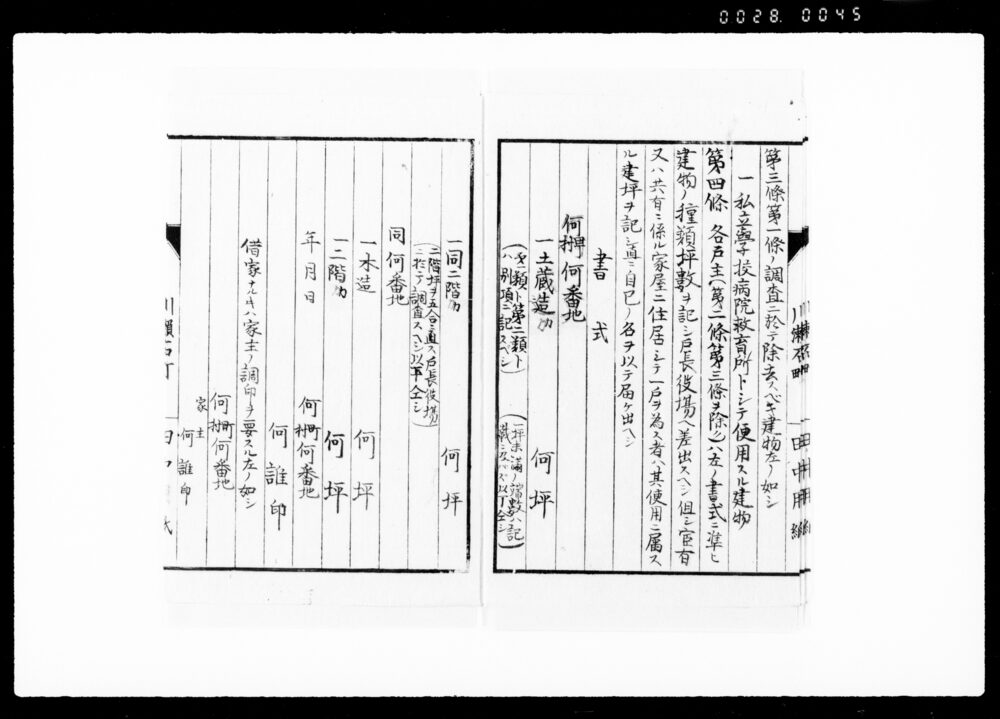 0028. 0045
第三條第一條ノ調査ニ於テ除去スベキ建物左ノ如シ
一 私立學校病院救育所トシテ使用スル建物
第四條 各戸主(第二條第三條ヲ除ク)ハ左ノ書式ニ準ヒ
建物ノ種類坪數ヲ記シ戸長役場ヘ差出スヘシ但シ官有
又ハ共有ニ係ル家屋ニ住居シテ一戸ヲ為ス者ハ其使用ニ属ス
ル建坪ヲ記シ直ニ自己ノ名ヲ以テ届ケ出ヘシ
書 式
何町村 何番地
一土蔵造 何坪
(第一類ト第二類トハ別項ニ記スヘシ)
(一坪未満ノ端數ハ記載ニ及ハス以下仝シ)
一同二階 何坪
(二階坪ヲ五合ニ直ス戸長役場ニ於テ調査スヘシ以下仝シ)
同 何番地
一木造 何坪
一二階 何坪
年 月 日 何町村何番地
何 誰 印
借家ナルトキハ家主ノ調印ヲ要スル左ノ如シ
何町村何番地
家主 何誰印